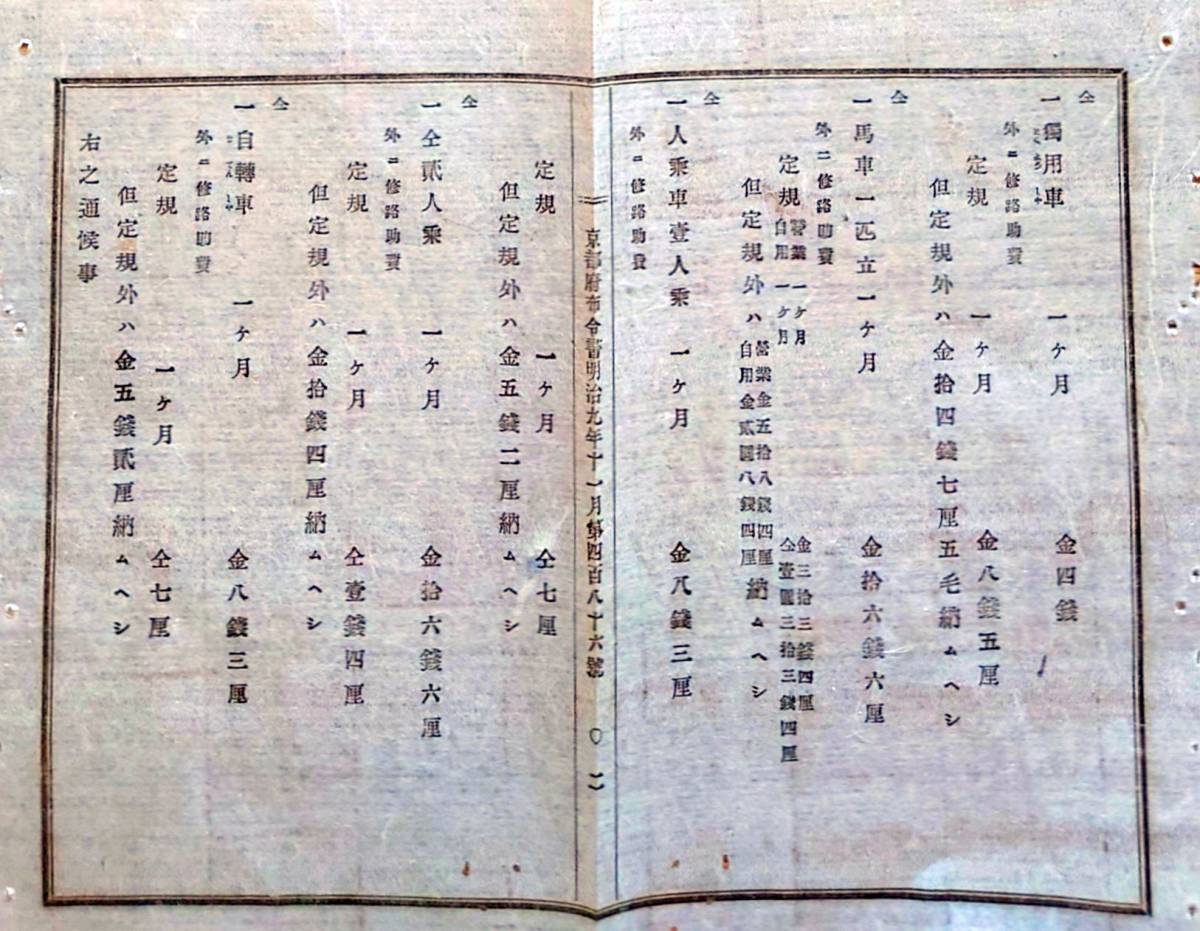 仝
一獨用車　一ケ月　金四錢
外ニ修路助費
定規　一ケ月　金八錢五厘
但定規外ハ金拾四錢七厘五毛納ムヘシ
仝
一馬車一匹立一ケ月　金拾六錢六厘
外ニ修路助費
定規　營業　一ケ月　金三拾三錢四厘
自用　一ケ月　仝壹圓三拾三錢四厘
但定規外ハ　營業金五拾八錢四厘
自用金貳圓八錢四厘　納ムヘシ
仝
一人乘車壹人乘　一ケ月　金八錢三厘
外ニ修路助費
京都府布令書明治九年十一月第四百八十六號　〇　二
定規　一ケ月　仝七厘
但定規外ハ金五錢二厘納ムヘシ
仝
一仝貳人乘　一ケ月　金拾六錢六厘
外ニ修路助費
定規　一ケ月　仝壹錢四厘
但定規外ハ金拾錢四厘納ムヘシ
仝
一自轉車　一ケ月　金八錢三厘
外ニ修路助費
定規　一ケ月　仝七厘
但定規外ハ金五錢貳厘納ムヘシ
右之通候事